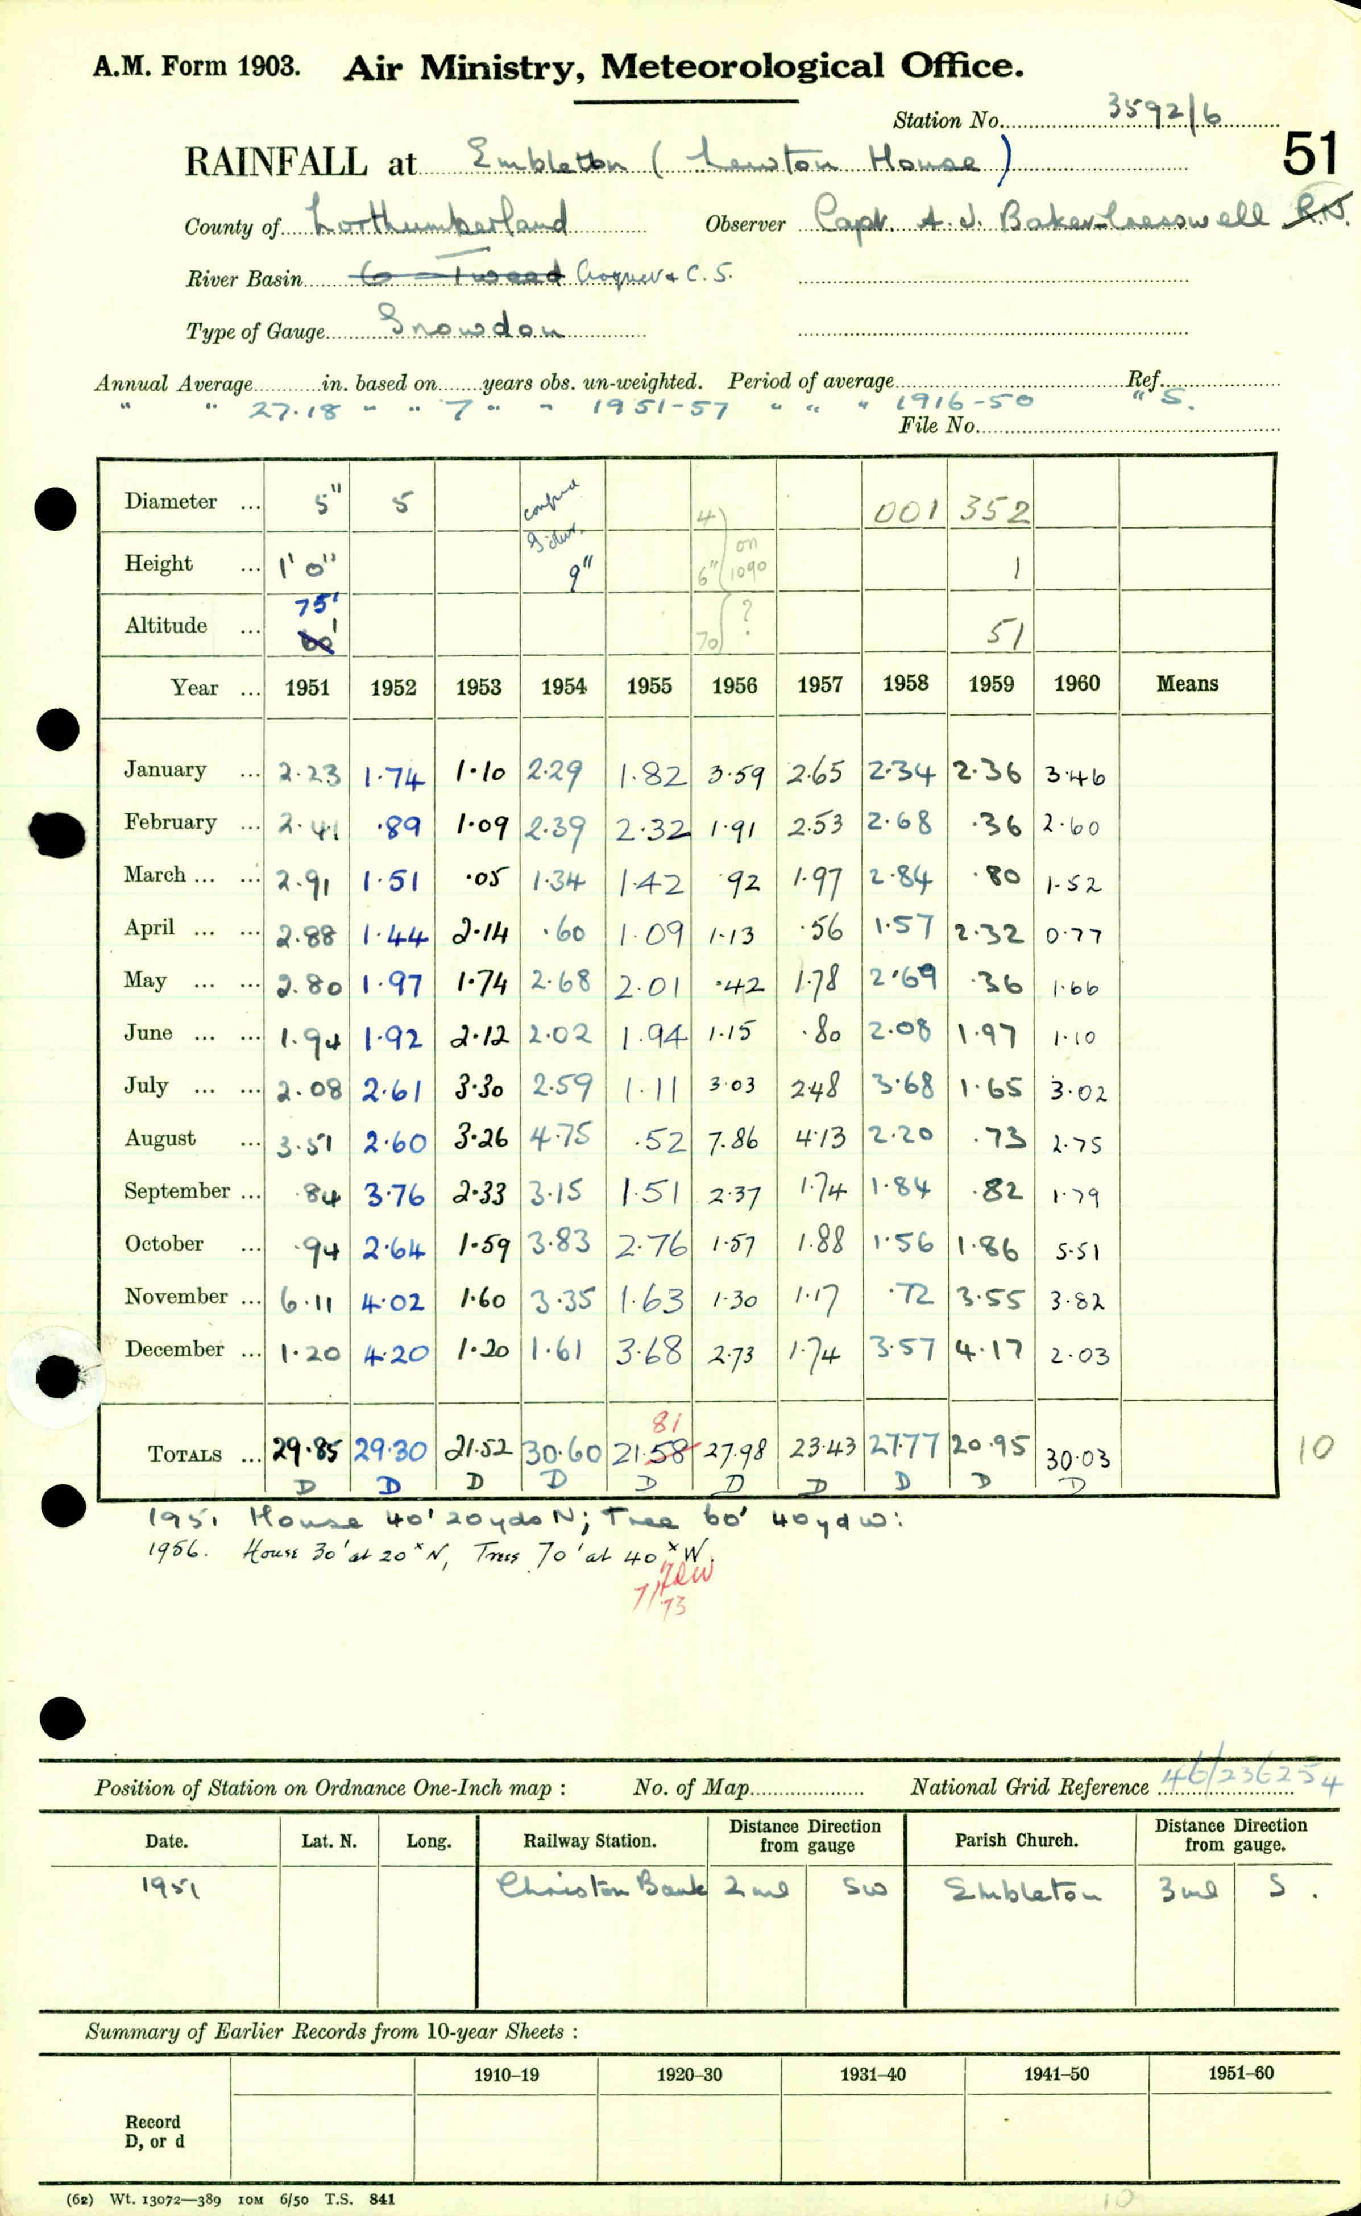 A.M. Form 1903. Air Ministry, Meteorological Office.
Station No. 3592/6
51
RAINFALL at Embleton (Newton House)
County of Northumberland Observer Capt. A. J. Baker-Cresswell R.N.
River Basin 6 - Tweed Coquet & C. S.
Type of Gauge Snowdon
Annual Average in. based on years obs. un-weighted. Period of average Ref.
" " 27.18 " " 7 " " 1951-57 " " " 1916-50 " S.
File No.
Diameter ... 5" 5 4 001 352
Height ... 1' 0" 9" 6" on 1090 1
Altitude ... 75' 60' 70 ? 51
Year ... 1951 1952 1953 1954 1955 1956 1957 1958 1959 1960 Means
January ... 2.23 1.74 1.10 2.29 1.82 3.59 2.65 2.34 2.36 3.46
February ... 2.41 .89 1.09 2.39 2.32 1.91 2.53 2.68 .36 2.60
March ... ... 2.91 1.51 .05 1.34 1.42 .92 1.97 2.84 .80 1.52
April ... ... 2.88 1.44 2.14 .60 1.09 1.13 .56 1.57 2.32 0.77
May ... ... 2.80 1.97 1.74 2.68 2.01 .42 1.78 2.69 .36 1.66
June ... ... 1.94 1.92 2.12 2.02 1.94 1.15 .80 2.08 1.97 1.10
July ... ... 2.08 2.61 3.30 2.59 1.11 3.03 2.48 3.68 1.65 3.02
August ... 3.51 2.60 3.26 4.75 .52 7.86 4.13 2.20 .73 2.75
September ... .84 3.76 2.33 3.15 1.51 2.37 1.74 1.84 .82 1.79
October ... .94 2.64 1.59 3.83 2.76 1.57 1.88 1.56 1.86 5.51
November ... 6.11 4.02 1.60 3.35 1.63 1.30 1.17 .72 3.55 3.82
December ... 1.20 4.20 1.20 1.61 3.68 2.73 1.74 3.57 4.17 2.03
81
TOTALS ... 29.85 29.30 21.52 30.60 21.58 27.98 23.43 27.77 20.95 30.03 10
D D D D D D D D D D
1951 House 40' 20yds N; Tree 60' 40yd W:
1956. House 30' at 20ˣ N, Trees 70' at 40ˣ W.
7/73
Position of Station on Ordnance One-Inch map : No. of Map National Grid Reference 46/236254
Date. Lat. N. Long. Railway Station. Distance Direction from gauge Parish Church. Distance Direction from gauge.
1951 Christon Bank 2 ml SW Embleton 3 ml S.
Summary of Earlier Records from 10-year Sheets :
1910–19 1920–30 1931–40 1941–50 1951–60
Record
D, or d
(62) Wt. 13072—389 10M 6/50 T.S. 841
10